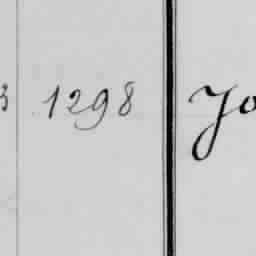 3 1298 Jo